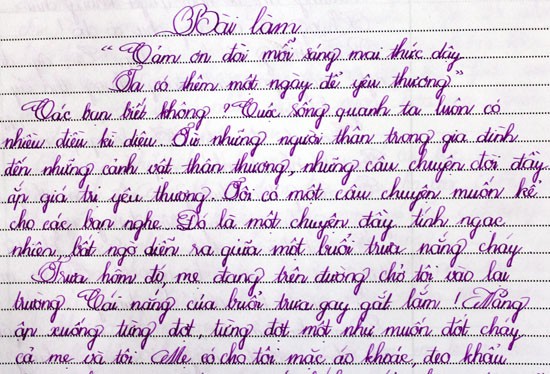 Bài làm
"Cám ơn đời mỗi sáng mai thức dậy
Ta có thêm một ngày để yêu thương"
Các bạn biết không? Cuộc sống quanh ta luôn có
nhiều điều kì diệu. Từ những người thân trong gia đình
đến những cảnh vật thân thương, những câu chuyện đời đầy
ắp giá trị yêu thương. Tôi có một câu chuyện muốn kể
cho các bạn nghe. Đó là một chuyện đầy tính ngạc
nhiên, bất ngờ diễn ra giữa một buổi trưa nắng cháy.
Trưa hôm đó, mẹ đang trên đường chở tôi vào lại
trường. Cái nắng của buổi trưa gay gắt lắm! Nắng
ập xuống từng đợt, từng đợt một như muốn đốt cháy
cả mẹ và tôi. Mẹ có cho tôi mặc áo khoác, đeo khẩu